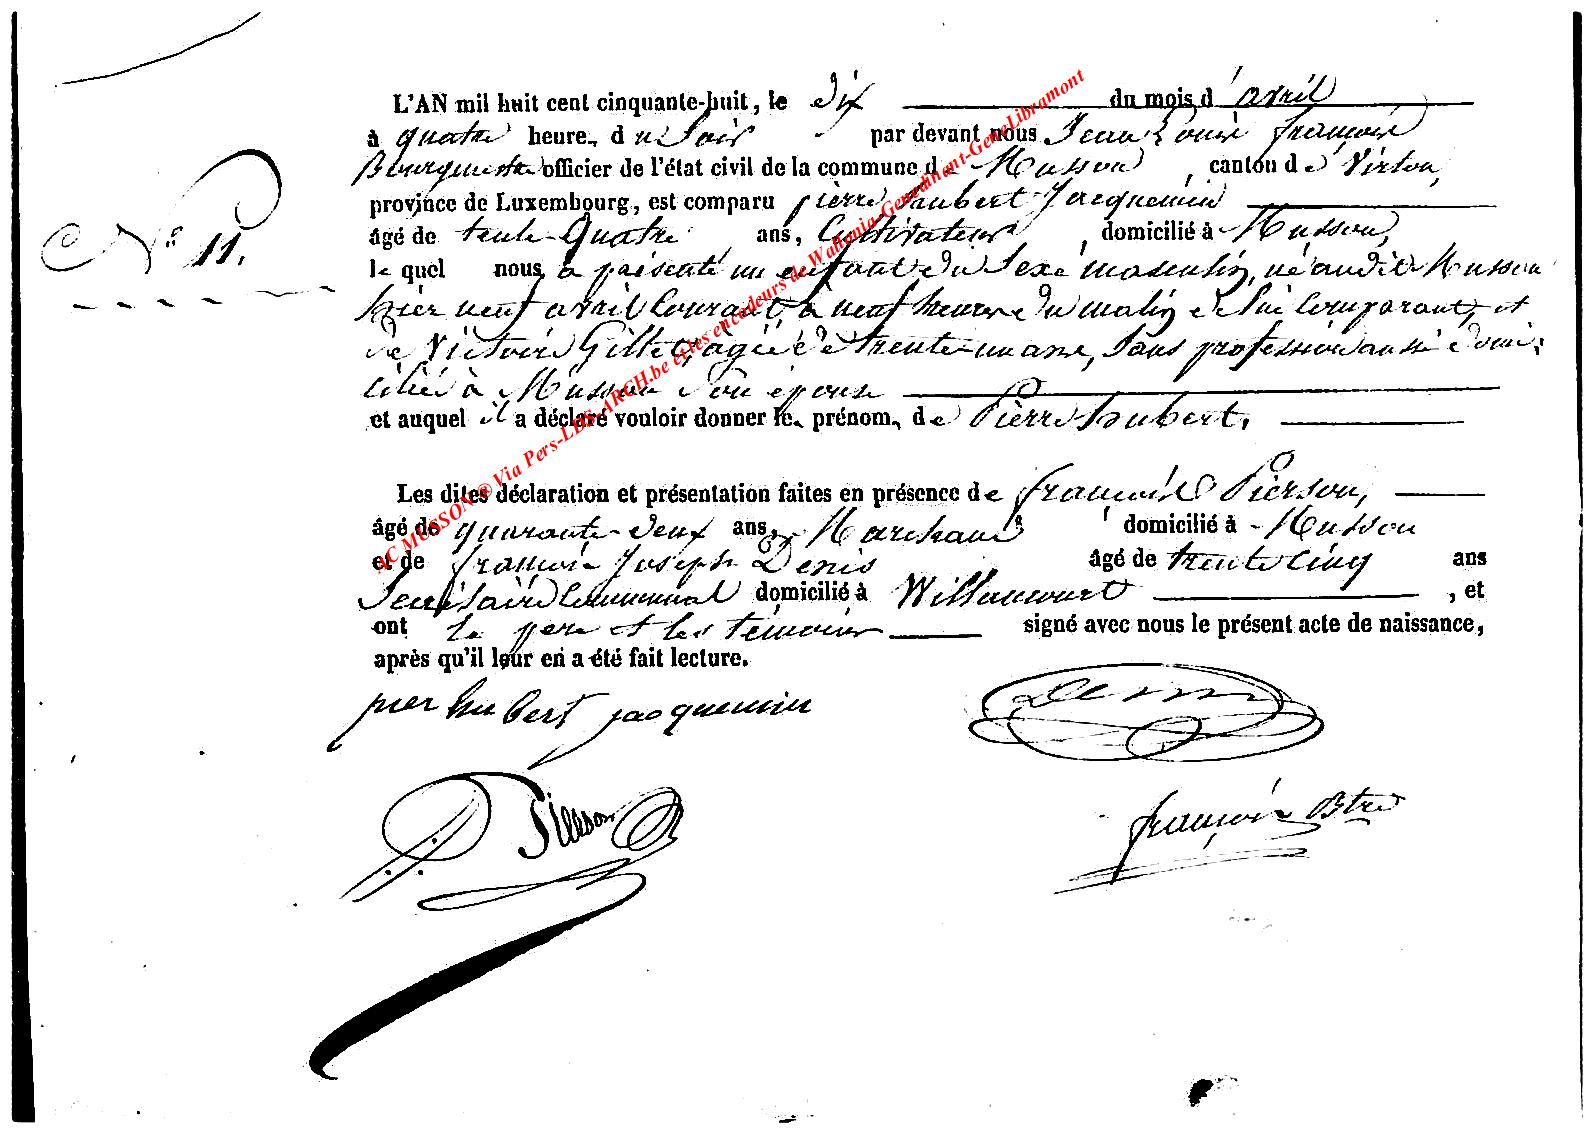 L'AN mil huit cent cinquante-huit, le dix du mois d'avril
à quatre heure. du Soir par devant nous Jean Louis françois
officier de l'état civil de la commune de Musson, canton de Virton,
province de Luxembourg, est comparu pierre hubert Jacquemin
N° 11.
âgé de tente-Quatre ans, Cultivateur, domicilié à Musson,
le quel nous a présenté un enfant du Sexe masculin, né audit Musson
hier neuf avril Courant, a neuf heures du matin de lui Comparant, et
de Victoire Gillet, agée de trente-un ans, Sans profession aussi domi-
ciliée à Musson Son épouse
et auquel il a déclaré vouloir donner le. prénom. de Pierre hubert.
Les dites déclaration et présentation faites en présence de françois Pierson,
âgé de quarante-deux ans, Marchand, domicilié à Musson
et de françois Joseph Denis âgé de trente Cinq ans
Secrétaire Communal domicilié à Willancourt, et
ont le pere et les témoins signé avec nous le présent acte de naissance,
après qu'il leur en a été fait lecture.
pier hubert jacquemin
Denis
Pierson
françois Btre
AC MUSSON ® Via Pers-LUX-ARCH.be et les encodeurs de Wallonia-Genedinant-GeneLibramont